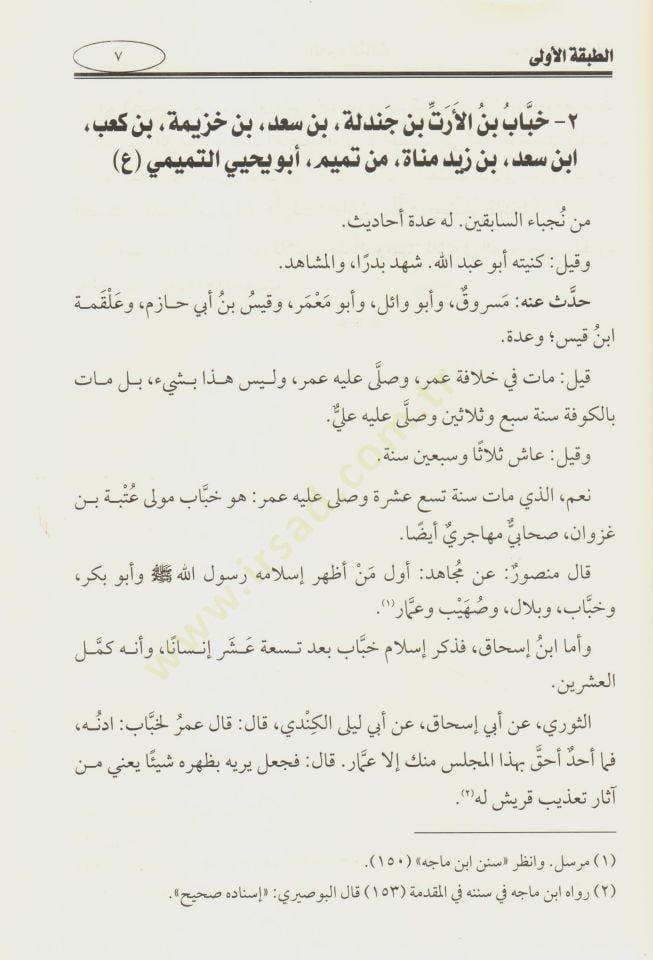 الطبقة الأولى ٧
٢- خبَّابُ بنُ الأَرَتِّ بن جَندلة، بن سعد، بن خزيمة، بن كعب،
ابن سعد، بن زيد مناة، من تميم، أبو يحيي التميمي (ع)
من نُجباء السابقين. له عدة أحاديث.
وقيل: كنيته أبو عبد الله. شهد بدرًا، والمشاهد.
حدَّث عنه: مَسروقٌ، وأبو وائل، وأبو مَعْمَر، وقيسُ بنُ أبي حازم، وعَلْقَمة
ابنُ قيس؛ وعدة.
قيل: مات في خلافة عمر، وصلَّى عليه عمر، وليس هذا بشيء، بل مات
بالكوفة سنة سبع وثلاثين وصلَّى عليه عليٌّ.
وقيل: عاش ثلاثًا وسبعين سنة.
نعم، الذي مات سنة تسع عشرة وصلى عليه عمر: هو خبَّاب مولى عُتْبة بن
غزوان، صحابيٌّ مهاجريٌ أيضًا.
قال منصورٌ: عن مجُاهد: أول مَنْ أظهر إسلامه رسول الله ﷺ وأبو بكر،
وخبَّاب، وبلال، وصُهَيْب وعمَّار(١).
وأما ابنُ إسحاق، فذكر إسلام خبَّاب بعد تسعة عَشَر إنسانًا، وأنه كمَّل
العشرين.
الثوري، عن أبي إسحاق، عن أبي ليلى الكِنْدي، قال: قال عمرُ لخبَّاب: ادنُه،
فما أحدٌ أحقَّ بهذا المجلس منك إلا عمَّار. قال: فجعل يريه بظهره شيئًا يعني من
آثار تعذيب قريش له(٢).
(١) مرسل. وانظر «سنن ابن ماجه» (١٥٠).
(٢) رواه ابن ماجه في سننه في المقدمة (١٥٣) قال البوصيري: «إسناده صحيح».
www.irsad.com.tr